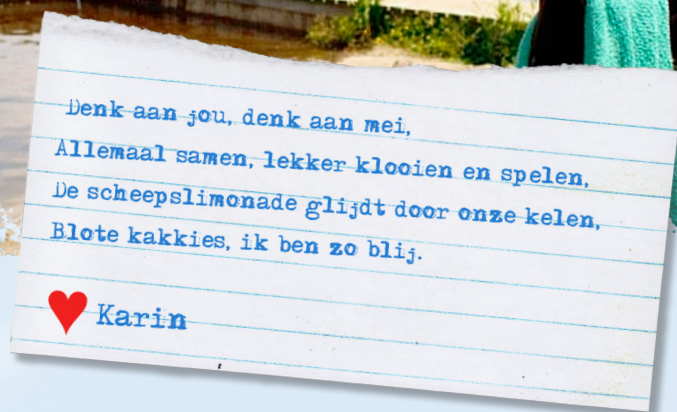 Denk aan jou, denk aan mei,
Allemaal samen, lekker klooien en spelen,
De scheepslimonade glijdt door onze kelen,
Blote kakkies, ik ben zo blij.
Karin